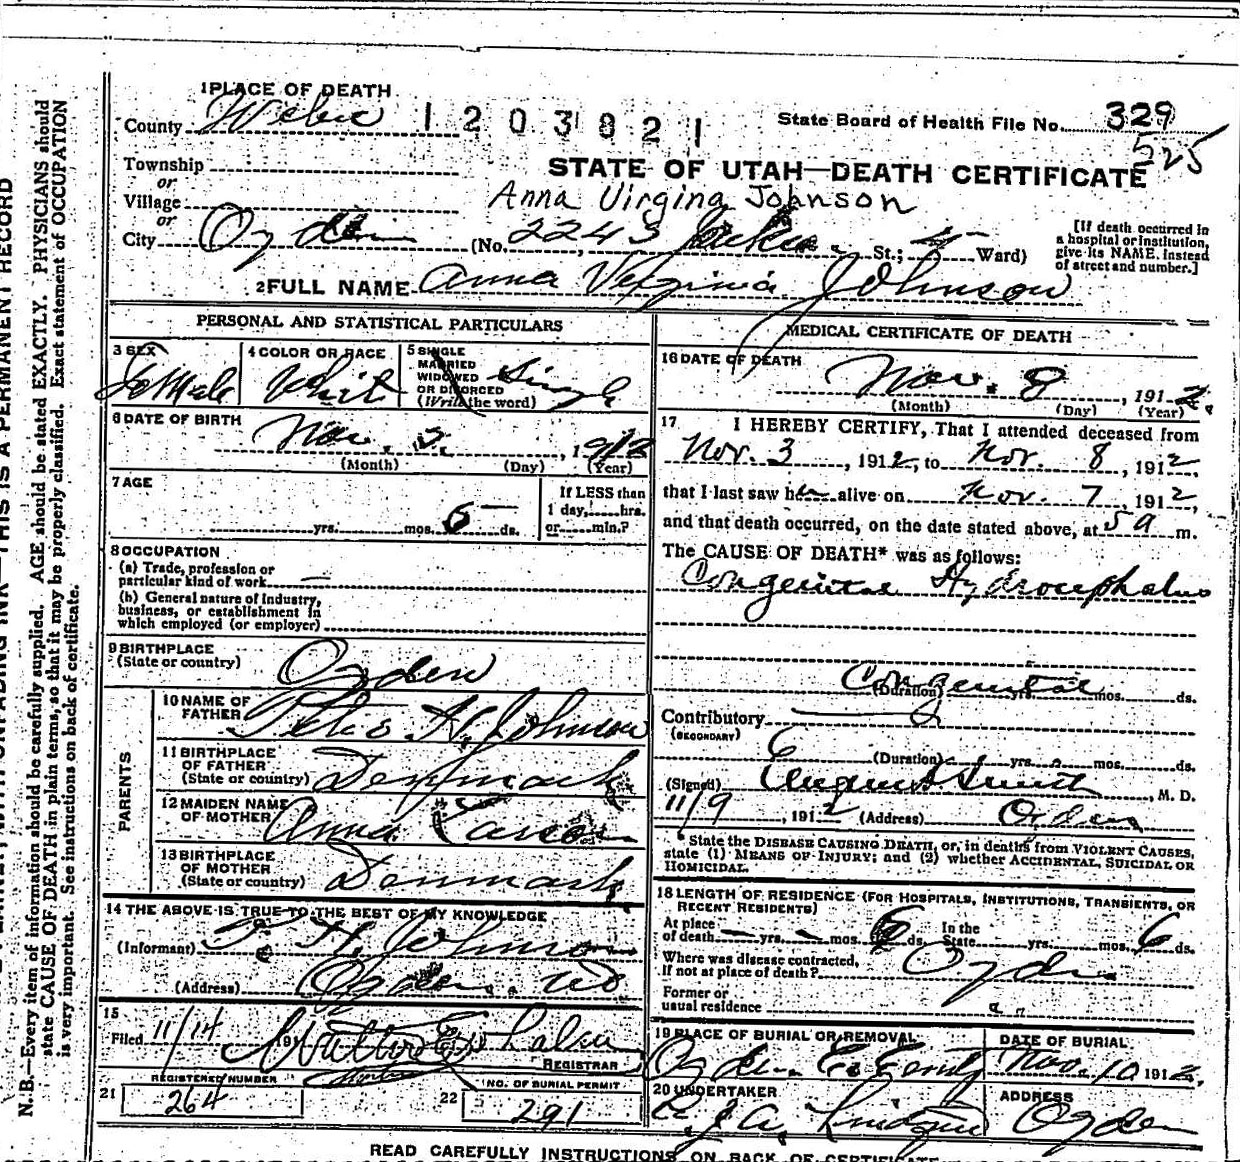 1 PLACE OF DEATH
County Weber
1203021
State Board of Health File No. 329
525
Township
or
Village
or
City Ogden
STATE OF UTAH—DEATH CERTIFICATE
Anna Virgina Johnson
(No. 2243 St.; Ward)
[If death occurred in a hospital or institution, give its NAME instead of street and number.]
2 FULL NAME Anna Virginia Johnson
PERSONAL AND STATISTICAL PARTICULARS
3 SEX Female
4 COLOR OR RACE White
5 SINGLE MARRIED WIDOWED OR DIVORCED (Write the word) Single
6 DATE OF BIRTH
Nov. 1912
(Month) (Day) (Year)
7 AGE
yrs. mos. ds.
If LESS than 1 day, hrs. or min.?
8 OCCUPATION
(a) Trade, profession or particular kind of work —
(b) General nature of industry, business, or establishment in which employed (or employer)
9 BIRTHPLACE
(State or country) Ogden
PARENTS
10 NAME OF FATHER H. Johnson
11 BIRTHPLACE OF FATHER (State or country) Denmark
12 MAIDEN NAME OF MOTHER Anna
13 BIRTHPLACE OF MOTHER (State or country) Denmark
14 THE ABOVE IS TRUE TO THE BEST OF MY KNOWLEDGE
(Informant) P. H. Johnson
(Address) Ogden
15
Filed 11/14 191
REGISTRAR
REGISTERED NUMBER
21 264
NO. OF BURIAL PERMIT
22 291
MEDICAL CERTIFICATE OF DEATH
16 DATE OF DEATH
Nov. 8, 1912.
(Month) (Day) (Year)
17 I HEREBY CERTIFY, That I attended deceased from
Nov. 3, 1912, to Nov. 8, 1912.
that I last saw her alive on Nov. 7, 1912,
and that death occurred, on the date stated above, at 5 a m.
The CAUSE OF DEATH* was as follows:
Congenital Hydrocephalus
Congenital
(Duration) yrs. mos. ds.
Contributory
(SECONDARY)
(Duration) yrs. mos. ds.
(Signed) Smith, M. D.
11/9, 1912 (Address) Ogden
*State the DISEASE CAUSING DEATH, or, in deaths from VIOLENT CAUSES, state (1) MEANS OF INJURY; and (2) whether ACCIDENTAL, SUICIDAL OR HOMICIDAL.
18 LENGTH OF RESIDENCE (FOR HOSPITALS, INSTITUTIONS, TRANSIENTS, OR RECENT RESIDENTS)
At place of death — yrs. — mos. 6 ds. In the State yrs. mos. 6 ds.
Where was disease contracted, if not at place of death? Ogden
Former or usual residence
19 PLACE OF BURIAL OR REMOVAL
Ogden
DATE OF BURIAL
Nov. 10 1912.
20 UNDERTAKER
ADDRESS
Ogden
READ CAREFULLY INSTRUCTIONS ON BACK OF CERTIFICATE
N.B.—Every item of information should be carefully supplied. AGE should be stated EXACTLY. PHYSICIANS should
state CAUSE OF DEATH in plain terms, so that it may be properly classified. Exact statement of OCCUPATION
is very important. See instructions on back of certificate.
THIS IS A PERMANENT RECORD